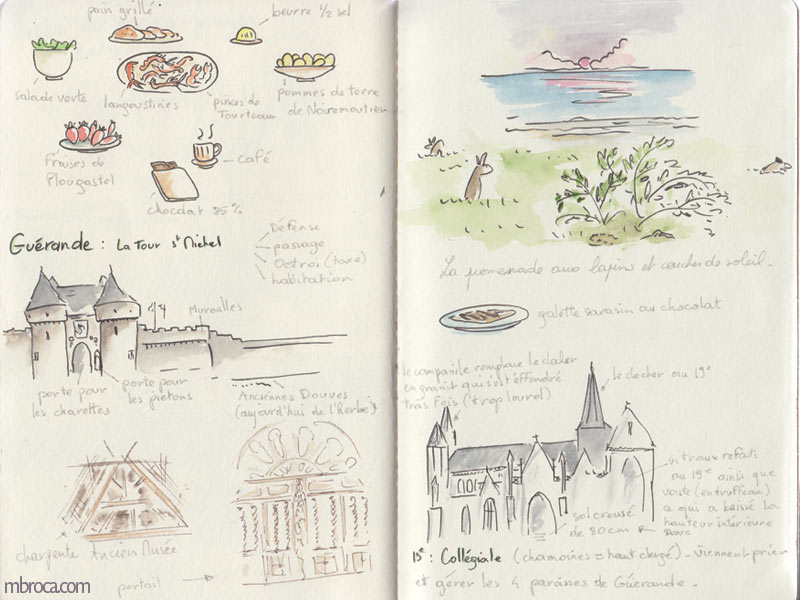 pain grillé
beurre 1/2 sel
salade verte
langoustines
pinces de
Tourteau
pommes de terre
de Noirmoutier
Fraises de
Plougastel
café
chocolat 85%
Guérande : La Tour St Michel
Défense
passage
Octroi (taxe)
habitation
Murailles
porte pour
les charettes
porte pour
les piétons
Anciennes Douves
(aujourd'hui de l'herbe)
charpente Ancien Musée
portail
mbroca.com
La promenade aux lapins et coucher de soleil.
galette sarasin au chocolat
le campanile remplace le clocher
en granit qui s'est effondré
trois fois (trop lourd)
le clocher du 19e
vitraux refaits
au 19e ainsi que
voute (en truffeau)
ce qui a baissé la
hauteur intérieure
sol creusé
de 80cm
15e : Collégiale (chanoines = haut clergé) - viennent prier
et gérer les 4 paroisses de Guérande.